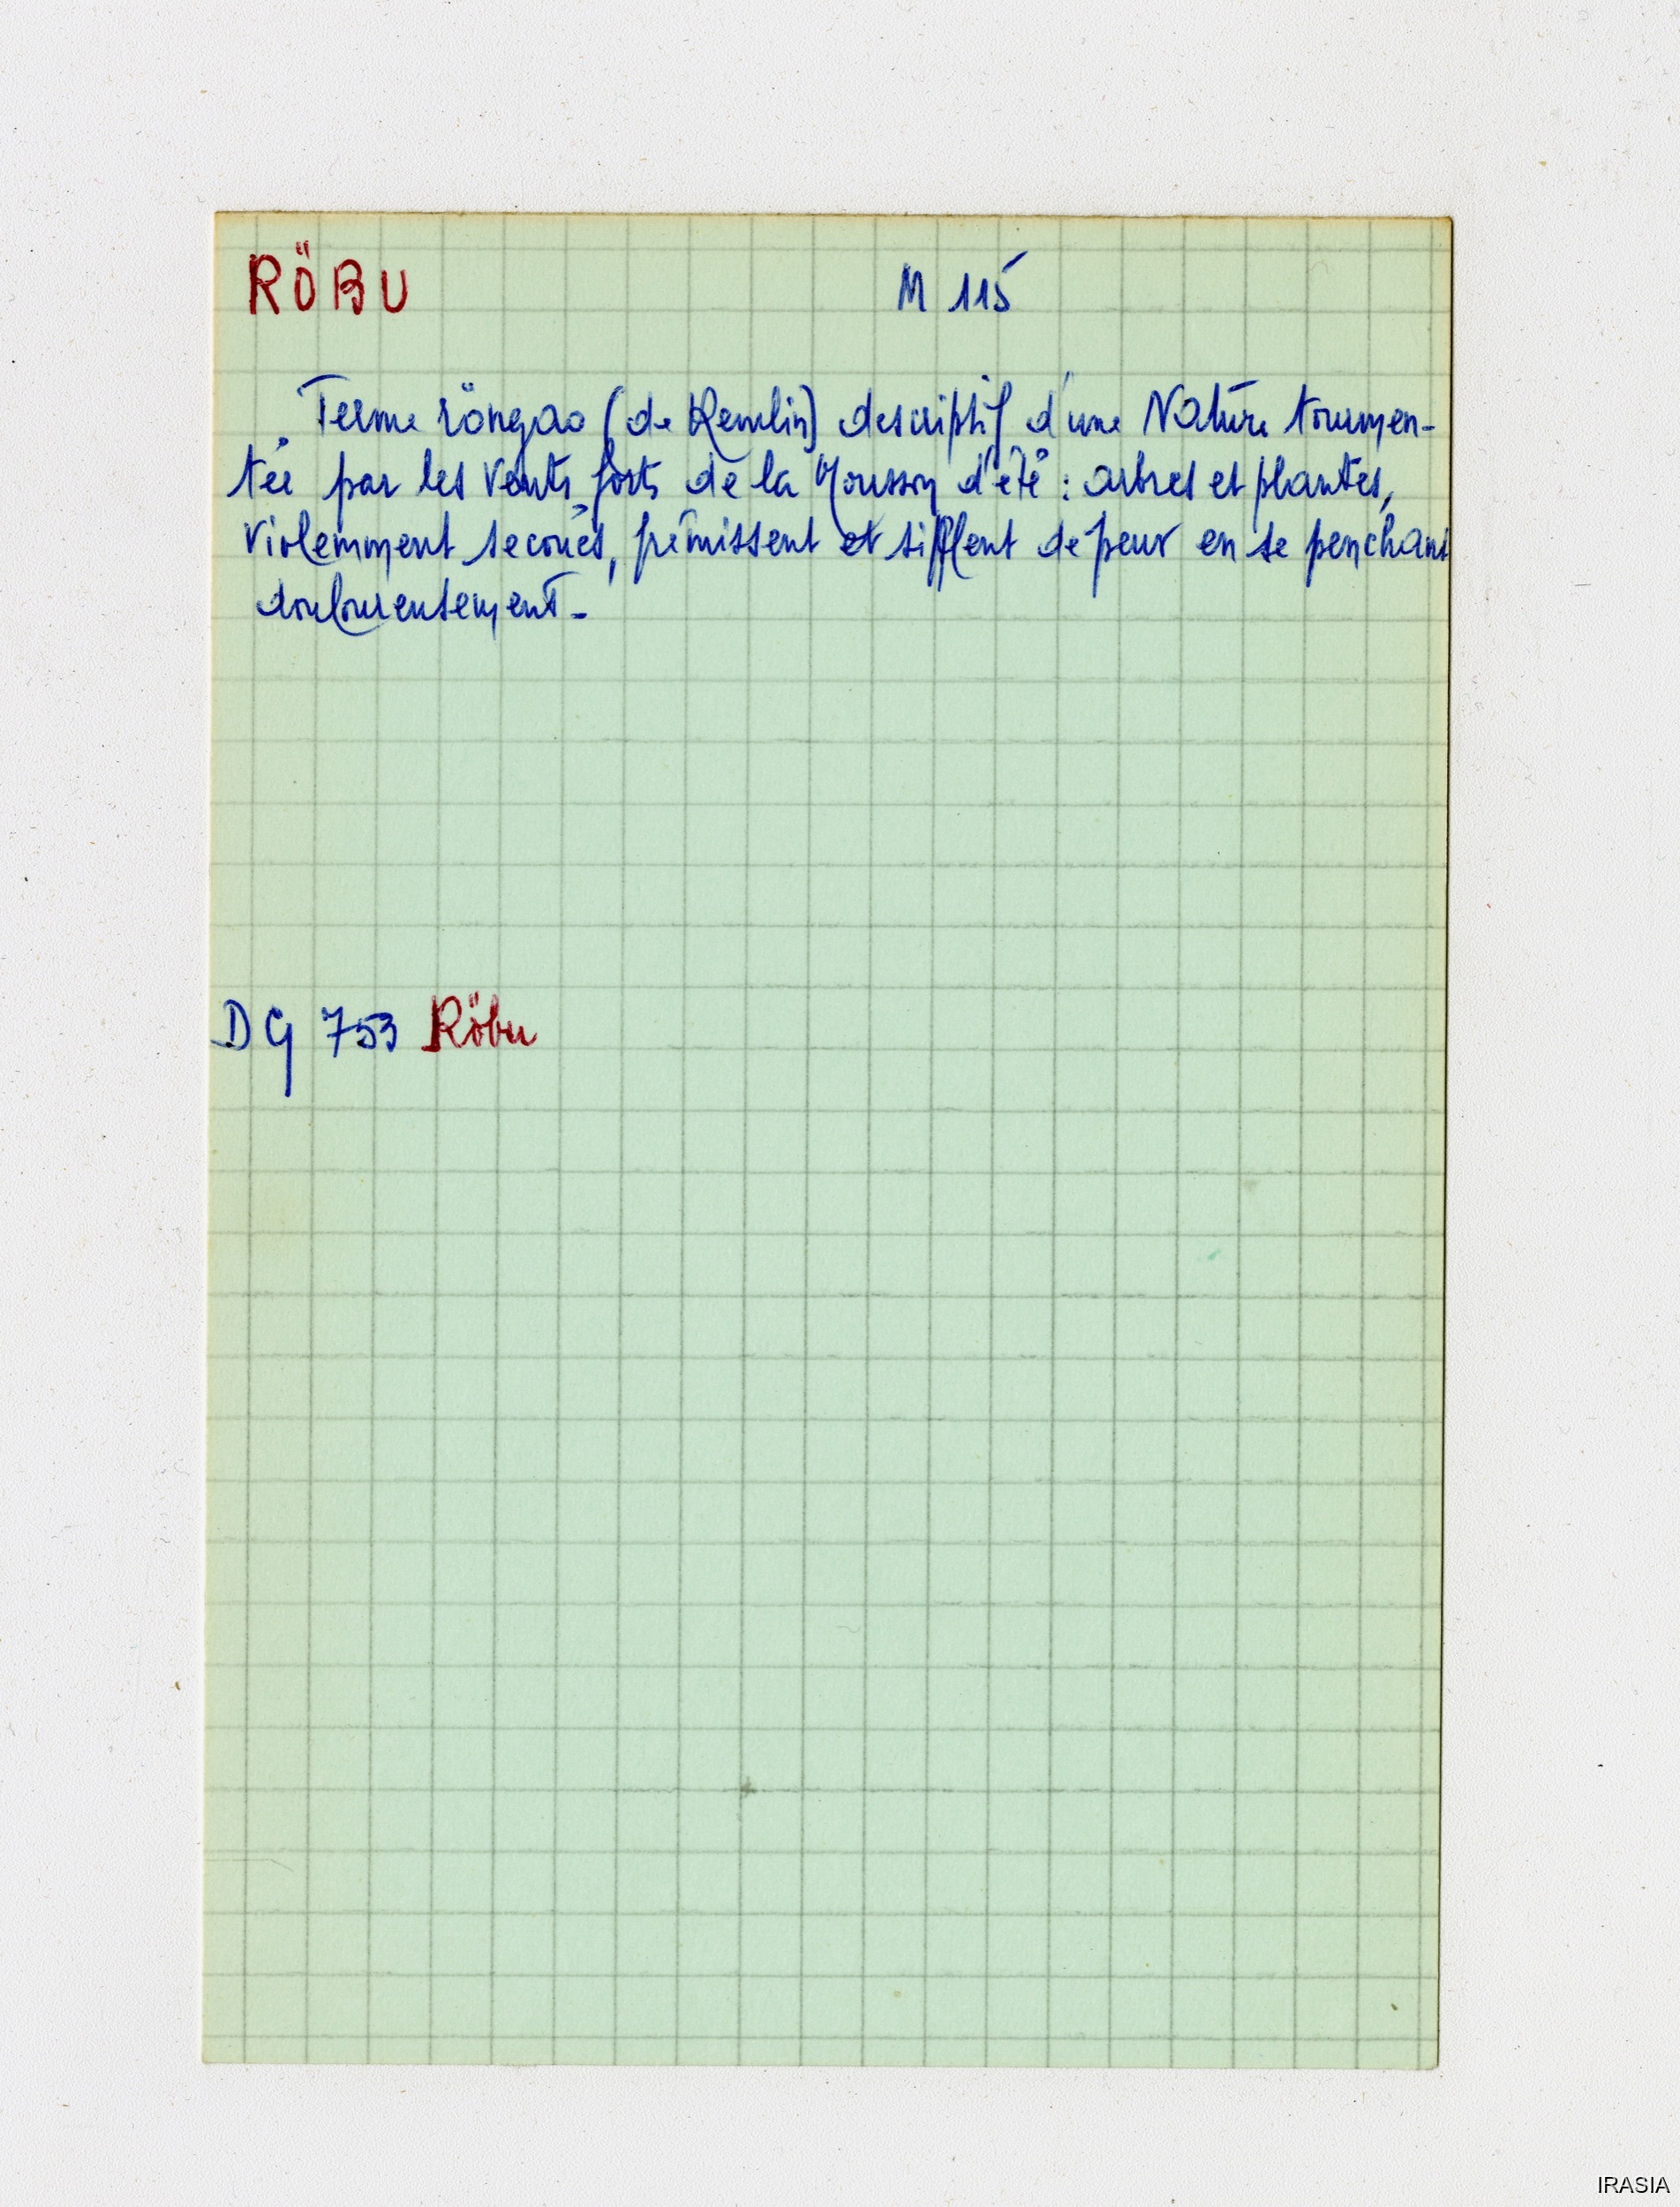 RÖBU M 115
Terme röngao (de Kemlin) descriptif d'une Nature tourmen-
tée par les vents forts de la Mousson d'été : arbres et plantes,
violemment secoués, frémissent et sifflent de peur en se penchant
douloureusement.
DG 753 Röbu
IRASIA